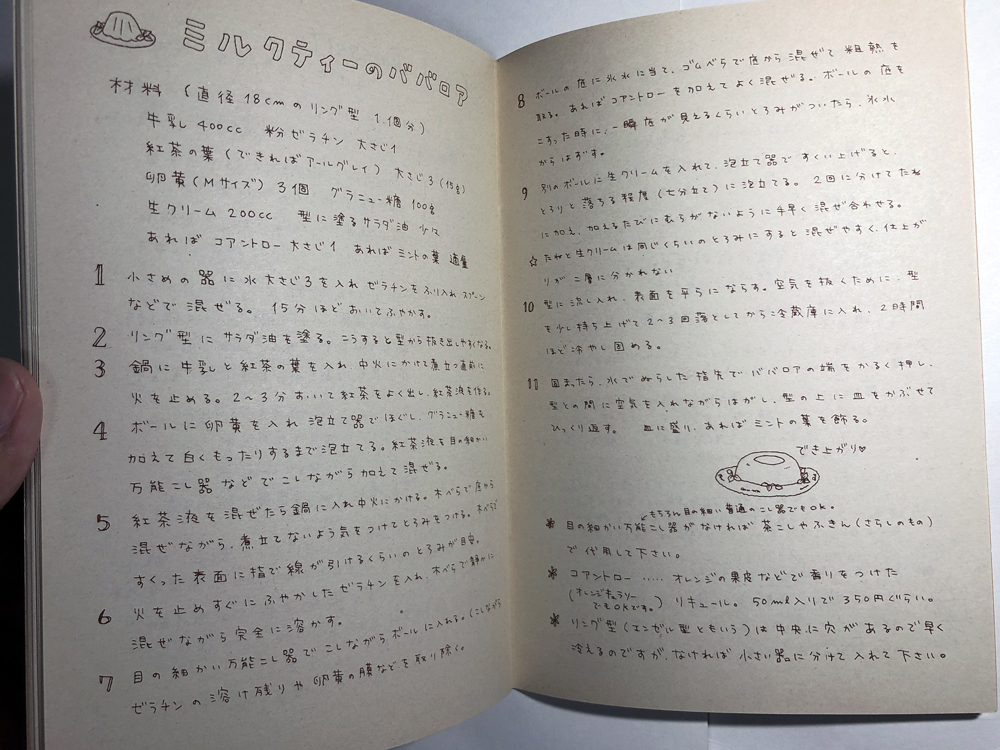 ミルクティーのババロア
材料 (直径18cmのリング型 1個分)
牛乳 400cc 粉ゼラチン 大さじ1
紅茶の葉(できればアールグレイ) 大さじ3(15g)
卵黄(Mサイズ) 3個 グラニュー糖 100g
生クリーム 200cc 型に塗るサラダ油 少々
あれば コアントロー 大さじ1 あれば ミントの葉 適量
1 小さめの器に水大さじ3を入れ ゼラチンをふり入れ スプーン
などで混ぜる。 15分ほどおいてふやかす。
2 リング型にサラダ油を塗る。こうすると型から抜き出しやすくなる。
3 鍋に牛乳と紅茶の葉を入れ、中火にかけて煮立つ直前に
火を止める。2〜3分すいて紅茶をよく出し、紅茶液を作る。
4 ボールに卵黄を入れ 泡立て器でほぐし、グラニュー糖も
加えて白くもったりするまで泡立てる。紅茶液を目の細かい
万能こし器などでこしながら加えて混ぜる。
5 紅茶液を混ぜたら鍋に入れ中火にかける。木べらで底から
混ぜながら、煮立てないよう気をつけてとろみをつける。木べらで
すくった表面に指で線が引けるくらいのとろみが目安。
6 火を止めすぐにふやかしたゼラチンを入れ、木べらで静かに
混ぜながら完全に溶かす。
7 目の細かい万能こし器でこしながらボールに入れる。(こしながら
ゼラチンの溶け残りや卵黄の膜などを取り除く。
8 ボールの底に氷水に当て、ゴムべらで底から混ぜて粗熱を
取る。あればコアントローを加えてよく混ぜる。ボールの底を
こすった時に、一瞬底が見えるくらいとろみがついたら、氷水
からはずす。
9 別のボールに生クリームを入れて、泡立て器ですくい上げると、
とろりと落ちる程度(七分立て)に泡立てる。2回に分けてたね
に加え、加えるたびにむらがないように手早く混ぜ合わせる。
☆たねと生クリームは同じくらいのとろみにすると混ぜやすく、仕上が
りが二層に分かれない
10 型に流し入れ、表面を平らにならす。空気を抜くために、型
を少し持ち上げて2〜3回落としてから冷蔵庫に入れ、2時間
ほど冷やし固める。
11 固まったら、水でぬらした指先でババロアの端をかるく押し、
型との間に空気を入れながらはがし、型の上に皿をかぶせて
ひっくり返す。 皿に盛り、あればミントの葉を飾る。
でき上がり♡
↙もちろん目の細い普通のこし器でもOK。
* 目の細かい万能こし器がなければ茶こしやふきん(さらしのもの)
で代用して下さい。
* コアントロー ‥‥‥ オレンジの果皮などで香りをつけた
(オレンジキュラソーでもOKです。) リキュール。50ml入りで350円ぐらい。
* リング型(エンゼル型ともいう)は中央に穴があるので早く
冷えるのですが、なければ小さい器に分けて入れて下さい。